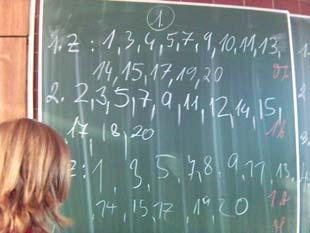 1.
1. Z : 1, 3, 4, 5, 7, 9, 10, 11, 13,
14, 15, 17, 19, 20
2. 2, 3, 5, 7, 9, 11, 12, 14, 15,
17, 18, 20
Z : 1, 3, 5, 7, 8, 9, 11, 13,
14, 15, 17, 19, 20